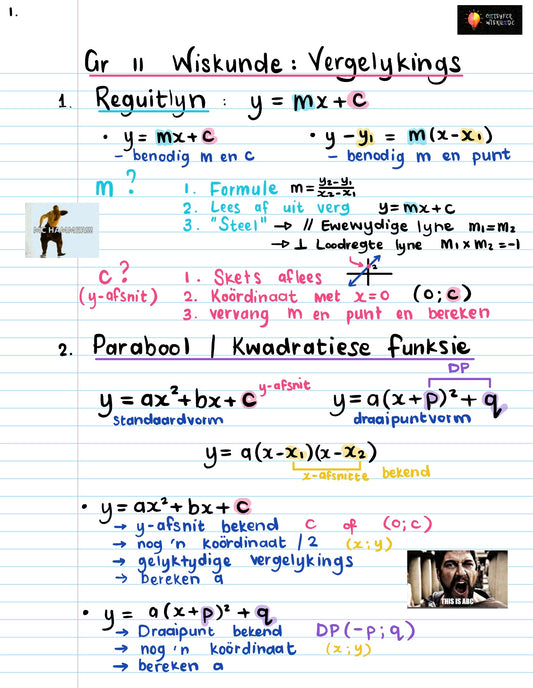 1.
OKERTJIES
WISKUNDE
Gr 11 Wiskunde: Vergelykings
1. Reguitlyn: y = mx+c
• y = mx+c
- benodig m en c
• y - y₁ = m(x-x₁)
- benodig m en punt
m?
1. Formule m = (y₂-y₁)/(x₂-x₁)
2. Lees af uit verg y = mx+c
3. "Steel" → // Ewewydige lyne m₁=m₂
→ ⊥ Loodregte lyne m₁ x m₂ = -1
MC HAMMERUM
c?
(y-afsnit)
1. Skets aflees
2
2. Koördinaat met x=0 (0;c)
3. vervang m en punt en bereken
2. Parabool / Kwadratiese funksie
y = ax²+bx+c y-afsnit
standaardvorm
DP
y = a(x+p)²+q
draaipuntvorm
y = a(x-x₁)(x-x₂)
x-afsnitte bekend
• y = ax²+bx+c
→ y-afsnit bekend c of (0;c)
→ nog 'n koördinaat /2 (x;y)
→ gelyktydige vergelykings
→ bereken a
THIS IS ABC
• y = a(x+p)²+q
→ Draaipunt bekend DP(-p;q)
→ nog 'n koördinaat (x;y)
→ bereken a